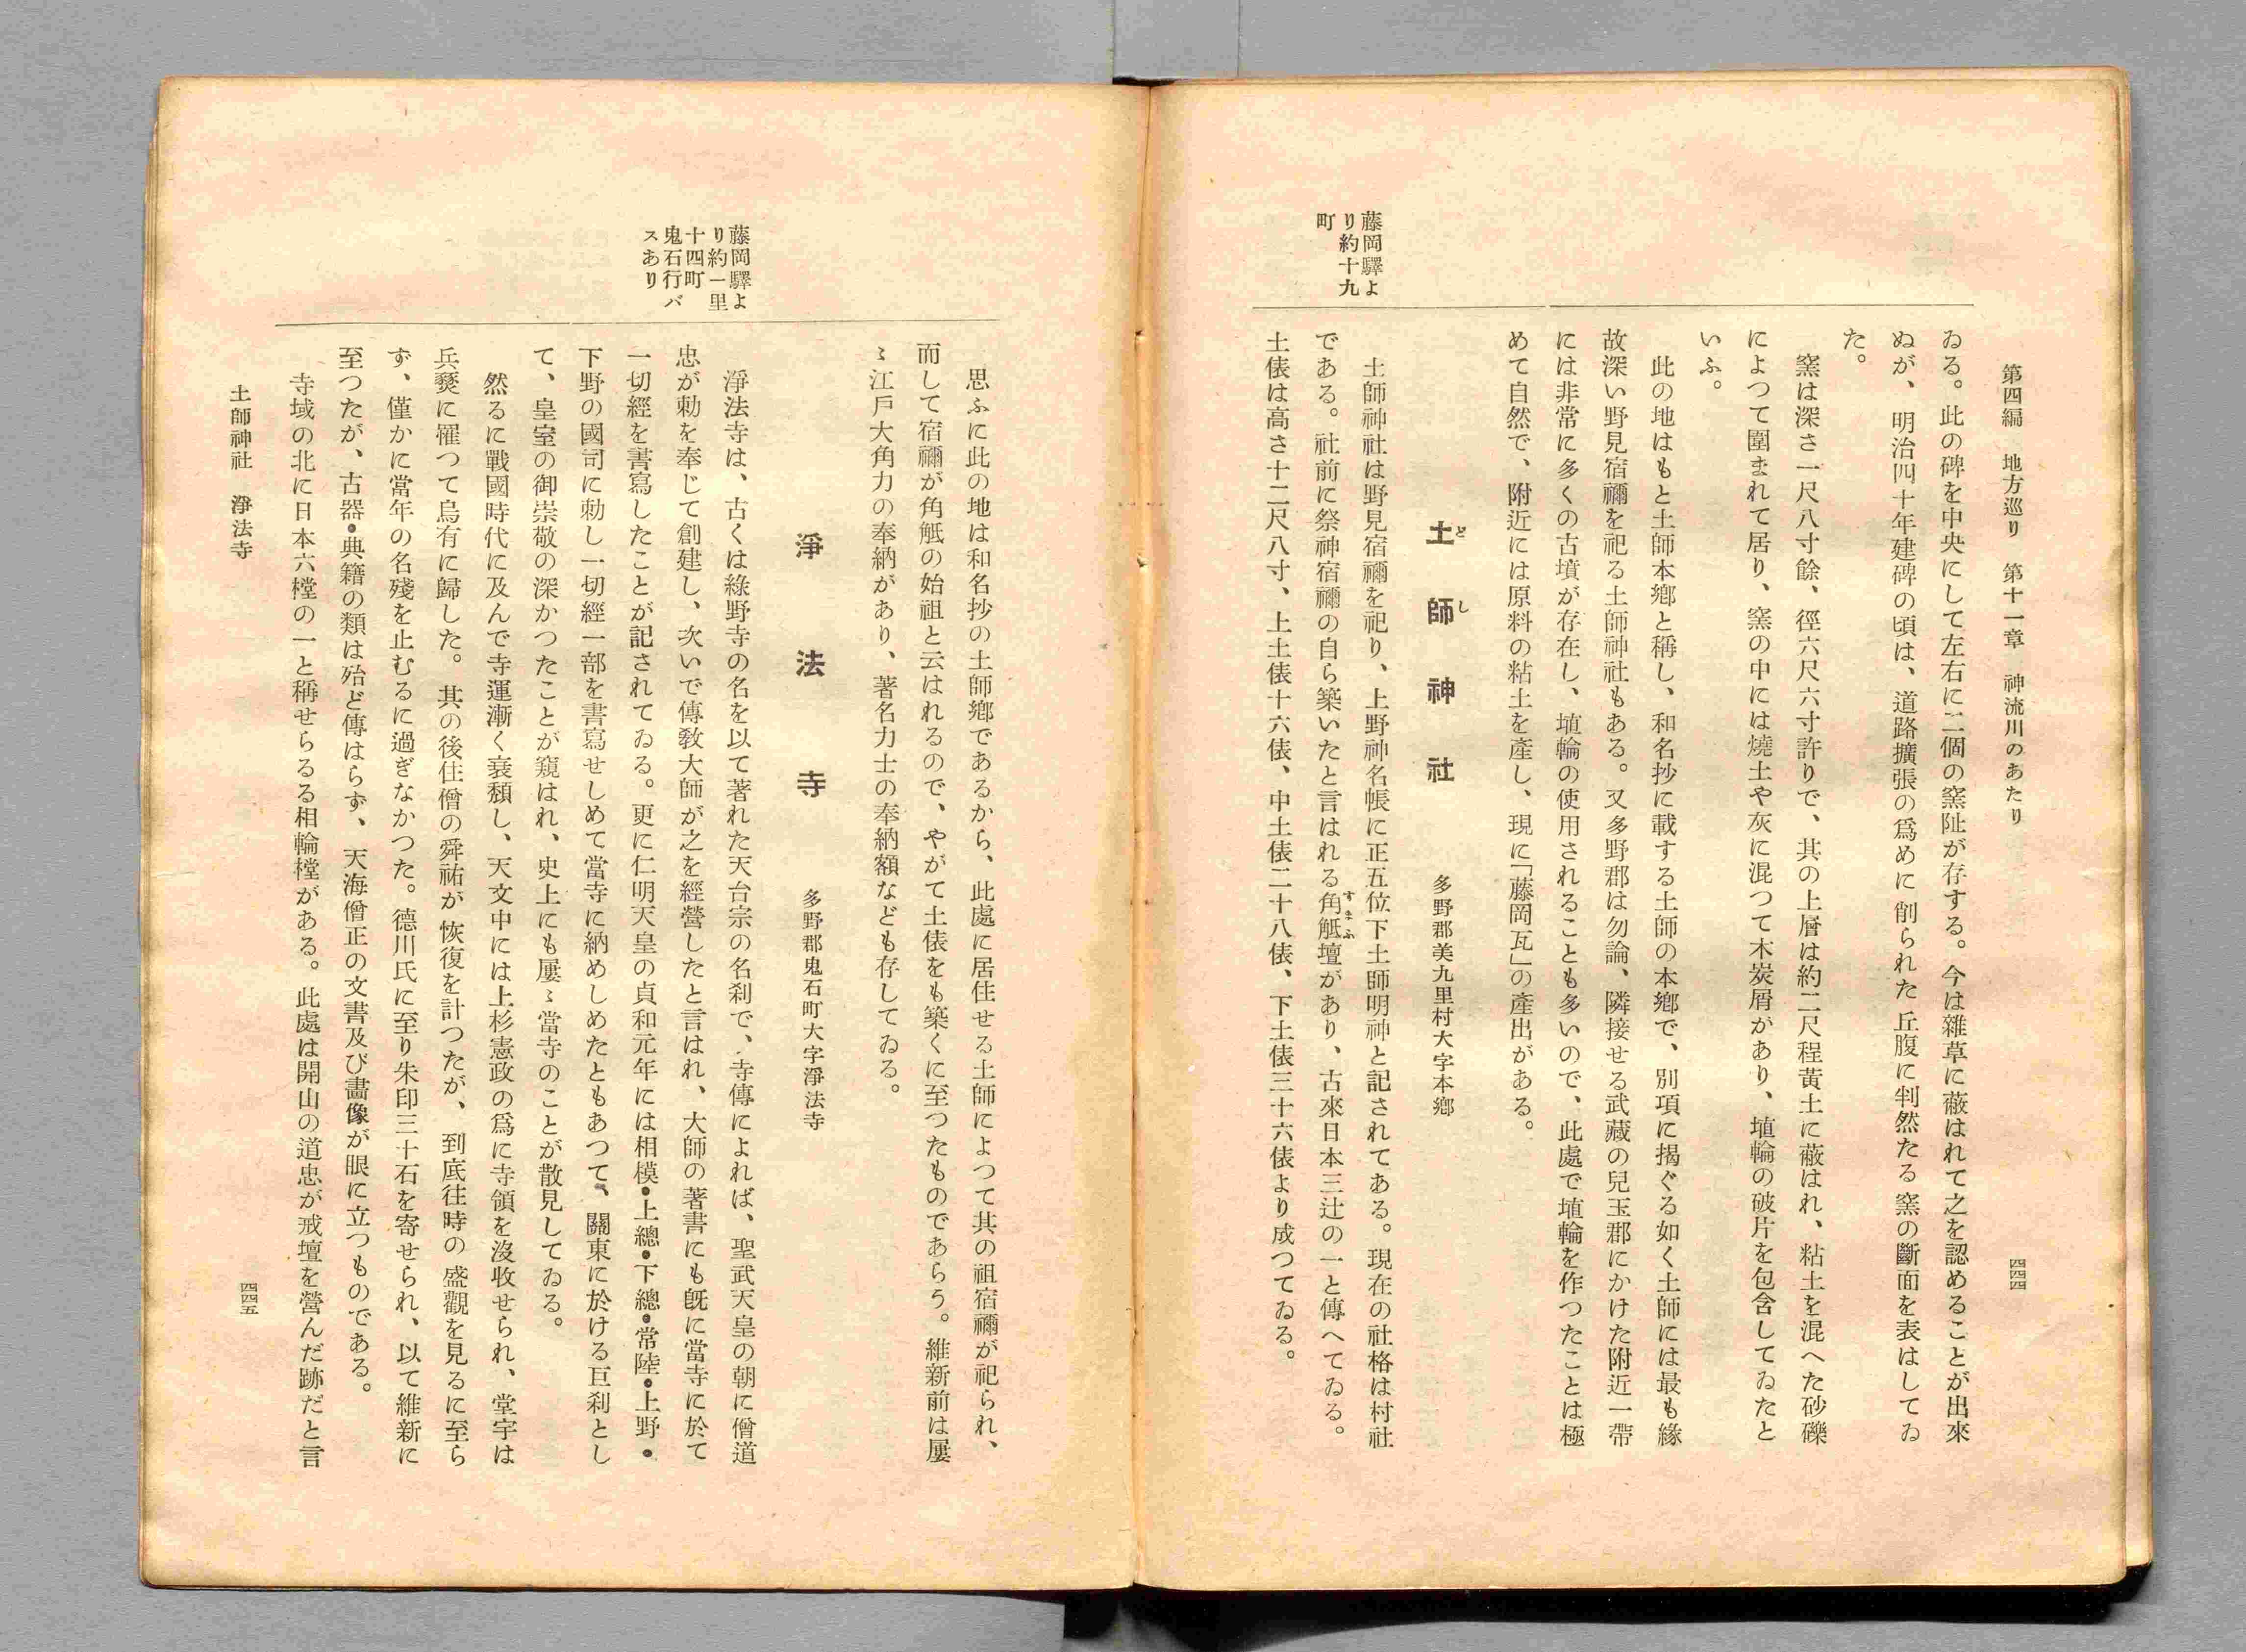 第四編　地方巡り　第十一章　神流川のあたり
四四四
ゐる。此の碑を中央にして左右に二個の窯阯が存する。今は雜草に蔽はれて之を認めることが出來
ぬが、明治四十年建碑の頃は、道路擴張の爲めに削られた丘腹に判然たる窯の斷面を表はしてゐ
た。
窯は深さ一尺八寸餘、徑六尺六寸許りで、其の上層は約二尺程黃土に蔽はれ、粘土を混へた砂礫
によつて圍まれて居り、窯の中には燒土や灰に混つて木炭屑があり、埴輪の破片を包含してゐたと
いふ。
此の地はもと土師本鄕と稱し、和名抄に載する土師の本鄕で、別項に揭ぐる如く土師には最も緣
故深い野見宿禰を祀る土師神社もある。又多野郡は勿論、隣接せる武藏の兒玉郡にかけた附近一帶
には非常に多くの古墳が存在し、埴輪の使用されることも多いので、此處で埴輪を作つたことは極
めて自然で、附近には原料の粘土を產し、現に「藤岡瓦」の產出がある。
土師神社　多野郡美九里村大字本鄕
どし
藤岡驛よ
り約十九
町
土師神社は野見宿禰を祀り、上野神名帳に正五位下土師明神と記されてある。現在の社格は村社
である。社前に祭神宿禰の自ら築いたと言はれる角觝壇があり、古來日本三辻の一と傳へてゐる。
すまふ
土俵は高さ十二尺八寸、上土俵十六俵、中土俵二十八俵、下土俵三十六俵より成つてゐる。
思ふに此の地は和名抄の土師鄕であるから、此處に居住せる土師によつて其の祖宿禰が祀られ、
而して宿禰が角觝の始祖と云はれるので、やがて土俵をも築くに至つたものであらう。維新前は屢
〻江戶大角力の奉納があり、著名力士の奉納額なども存してゐる。
淨法寺　多野郡鬼石町大字淨法寺
藤岡驛よ
り約一里
十四町
鬼石行バ
スあり
淨法寺は、古くは綠野寺の名を以て著れた天台宗の名刹で、寺傳によれば、聖武天皇の朝に僧道
忠が勅を奉じて創建し、次いで傳敎大師が之を經營したと言はれ、大師の著書にも旣に當寺に於て
一切經を書寫したことが記されてゐる。更に仁明天皇の貞和元年には相模・上總・下總・常陸・上野・
下野の國司に勅し一切經一部を書寫せしめて當寺に納めしめたともあつて、關東に於ける巨刹とし
て、皇室の御崇敬の深かつたことが窺はれ、史上にも屢〻當寺のことが散見してゐる。
然るに戰國時代に及んで寺運漸く衰頽し、天文中には上杉憲政の爲に寺領を沒收せられ、堂宇は
兵燹に罹つて烏有に歸した。其の後住僧の舜祐が恢復を計つたが、到底往時の盛觀を見るに至ら
ず、僅かに當年の名殘を止むるに過ぎなかつた。德川氏に至り朱印三十石を寄せられ、以て維新に
至つたが、古器・典籍の類は殆ど傳はらず、天海僧正の文書及び畫像が眼に立つものである。
寺域の北に日本六樘の一と稱せらるる相輪樘がある。此處は開山の道忠が戒壇を營んだ跡だと言
土師神社　淨法寺
四四五